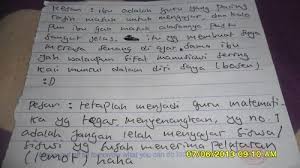 Kesan : ibu adalah guru yang paling
rajin masuk untuk mengajar, dan kalo
pun ibu gak masuk alasannya pasti
sangat jelas, yg membuat saya
merasa senang di ajar sama ibu
yah walaupun sifat manusiawi sering
kali muncul dlm diri saya (bosen)
:D
Pesan : tetaplah menjadi guru matemati-
ka yg tegar, menyenangkan, yg no. 1
adalah jangan lelah mengajar siswa/
siswi yg susah menerima pelajaran
(lemot) haha
what you can do
07/06/2013 09:10 AM